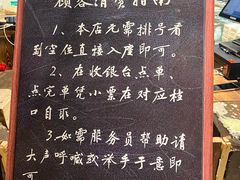 顾客消费指南
1、本店无需排号看
到空位直接入座即可。
2、在收银台点单、
点完单凭小票在对应档
口自取。
3、如需服务员帮助请
大声呼喊或举手示意即
可